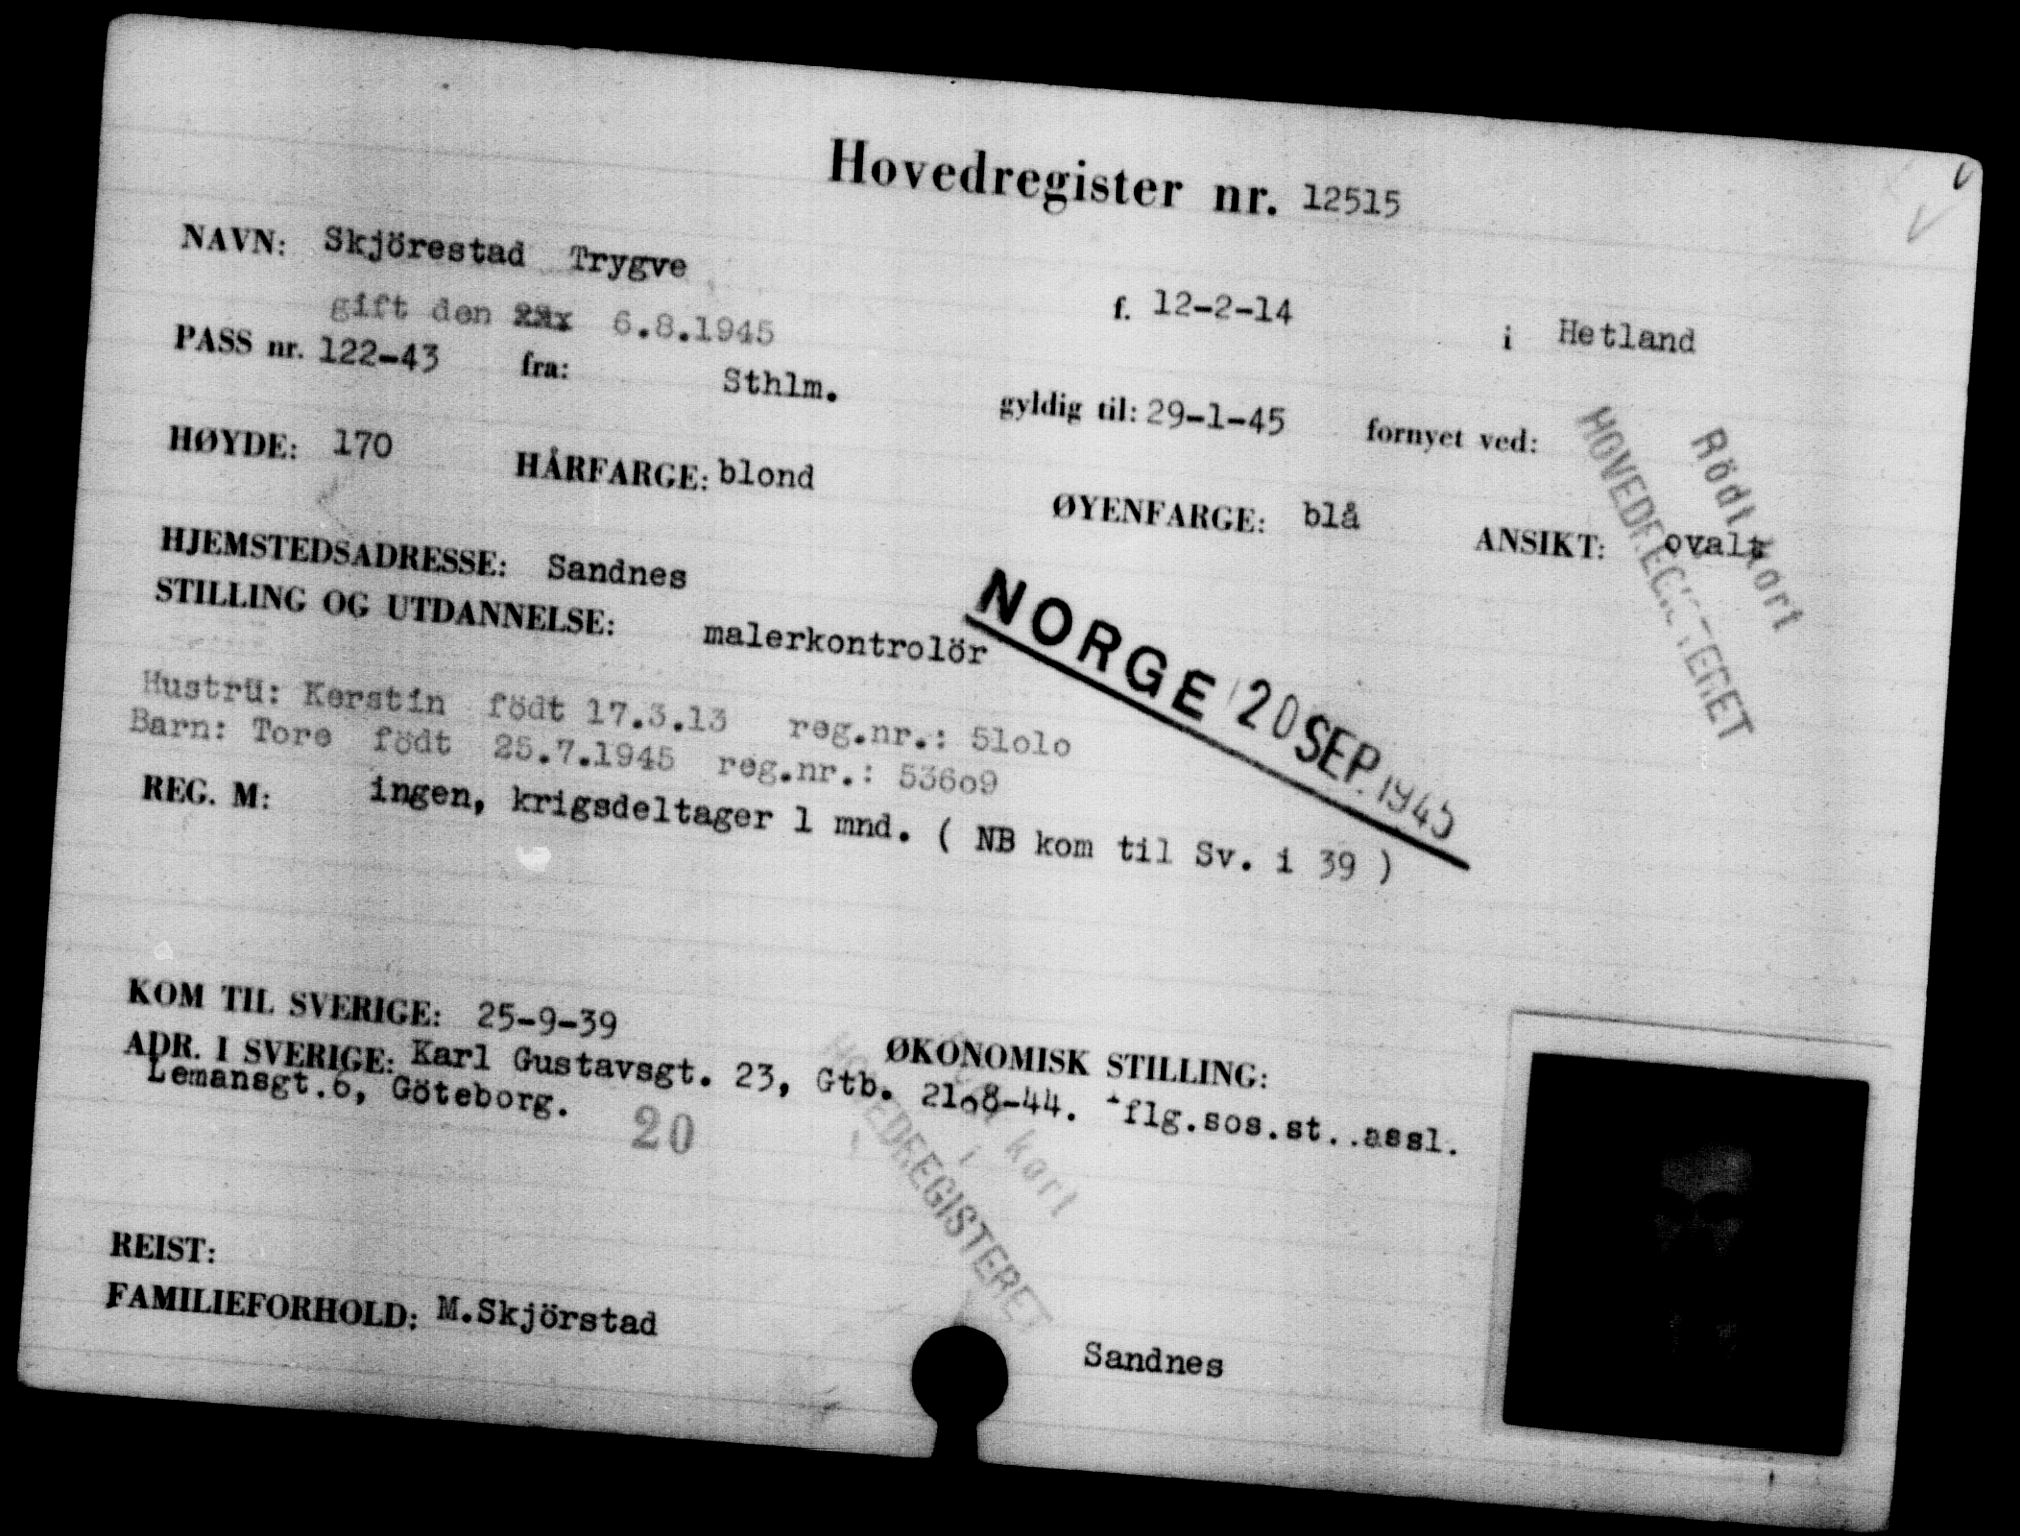 Hovedregister nr. 12515
NAVN: Skjörestad Trygve
f. 12-2-14 i Hetland
gift den 6.8.1945
PASS nr. 122-43 fra: Sthlm. gyldig til: 29-1-45 fornyet ved:
HØYDE: 170 HÅRFARGE: blond ØYENFARGE: blå ANSIKT: ovalt
Rödt kort
HOVEDREGISTERET
HJEMSTEDSADRESSE: Sandnes
STILLING OG UTDANNELSE: malerkontrolör
NORGE 20 SEP. 1945
Hustru: Kerstin födt 17.3.13 reg.nr.: 51olo
Barn: Tore födt 25.7.1945 reg.nr.: 536o9
REG. M: ingen, krigsdeltager 1 mnd. ( NB kom til Sv. i 39 )
KOM TIL SVERIGE: 25-9-39 ØKONOMISK STILLING:
ADR. I SVERIGE: Karl Gustavsgt. 23, Gtb. 21.8-44. flg.sos.st..assl.
Lemansgt.6, Göteborg.
20
kort
i
HOVEDREGISTERET
REIST:
FAMILIEFORHOLD: M.Skjörstad Sandnes